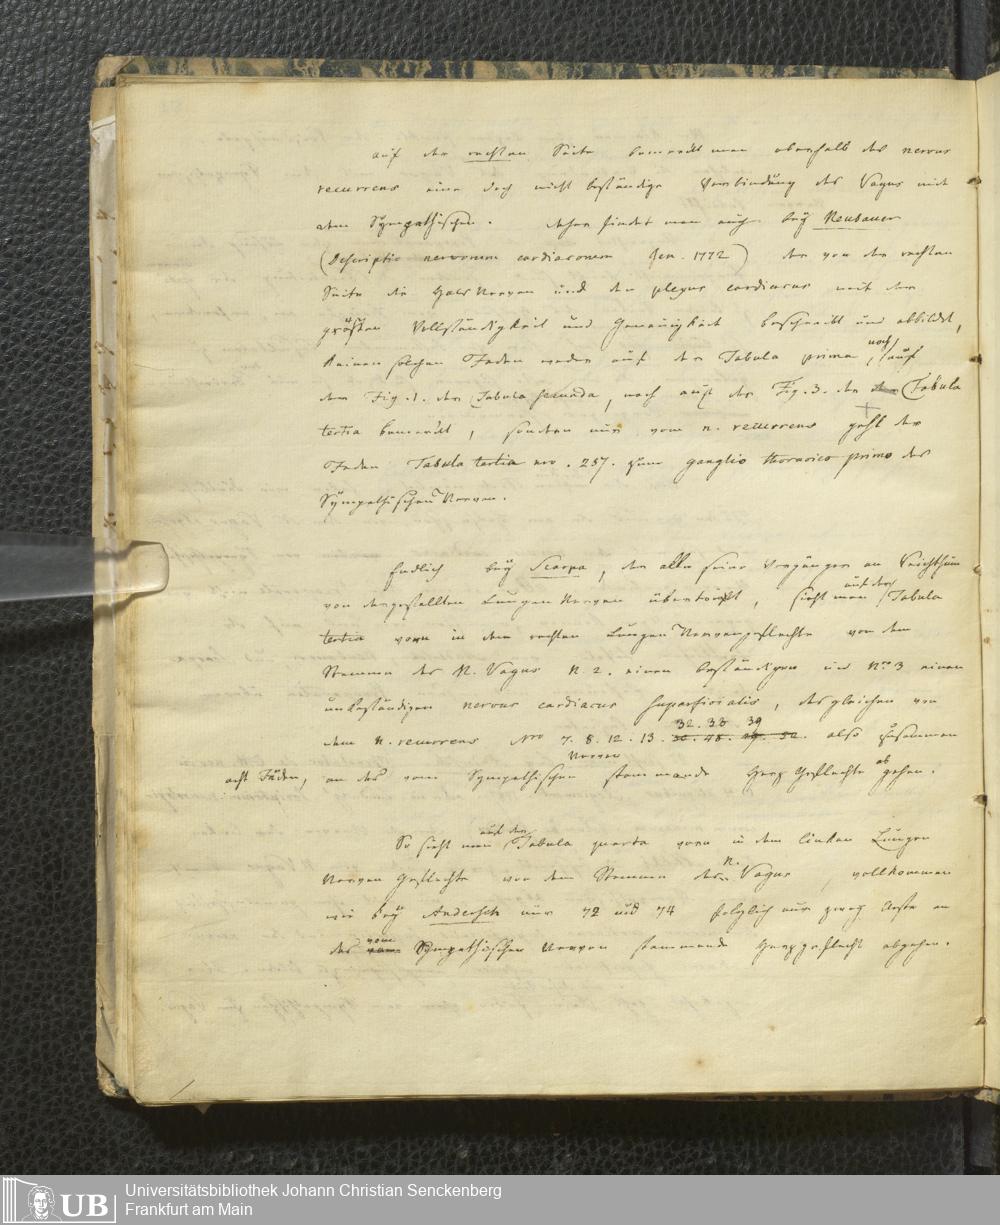 auf der rechten Seite bemerkt man oberhalb des nervus
recurrens eine doch nicht beständige Verbindung des Vagus mit
dem Sympathischen. Daher findet man auch bey Neubauer
(Descriptio nervorum cardiacorum Jen. 1772) der von der rechten
Seite die Hals Nerven und den plexus cardiacus mit der
größten Vollständigkeit und Genauigkeit beschreibt und abbildet,
keinen solchen Faden weder auf der Tabula prima, noch auf
der Fig. 1. der Tabula secunda, noch auf der Fig. 3. der Tabula
tertia bemerkt, sondern nur vom n. recurrens geht der
Faden Tabula tertia nro. 257. zum ganglio thoracico primo des
Sympathischen Nerven.
Endlich bey Scarpa, der alle seine Vorgänger an Reichthum
von dargestellten Lungen Nerven übertrifft, sieht man auf der Tabula
tertia vorn in dem rechten Lungen Nervengeflechte von dem
Stamme des N. Vagus N. 2. einen beständigen und Nro 3 einen
unbeständigen nervus cardiacus superficialis, desgleichen von
dem N. recurrens Nro 7. 8. 12. 13. 32. 33. 39 also zusammen
acht Fäden, an das vom Sympathischen Nerven stammende Herz Geflechte abgehen.
So sieht man auf der Tabula quarta vorn in dem linken Lungen
Nerven Geflechte von dem Stamme des N. Vagus, vollkommen
wie bey Andersch nur 72 und 74 folglich nur zwey Aeste an
das vom Sympathischen Nerven stammende Herzgeflecht abgehen.
UB
Universitätsbibliothek Johann Christian Senckenberg
Frankfurt am Main